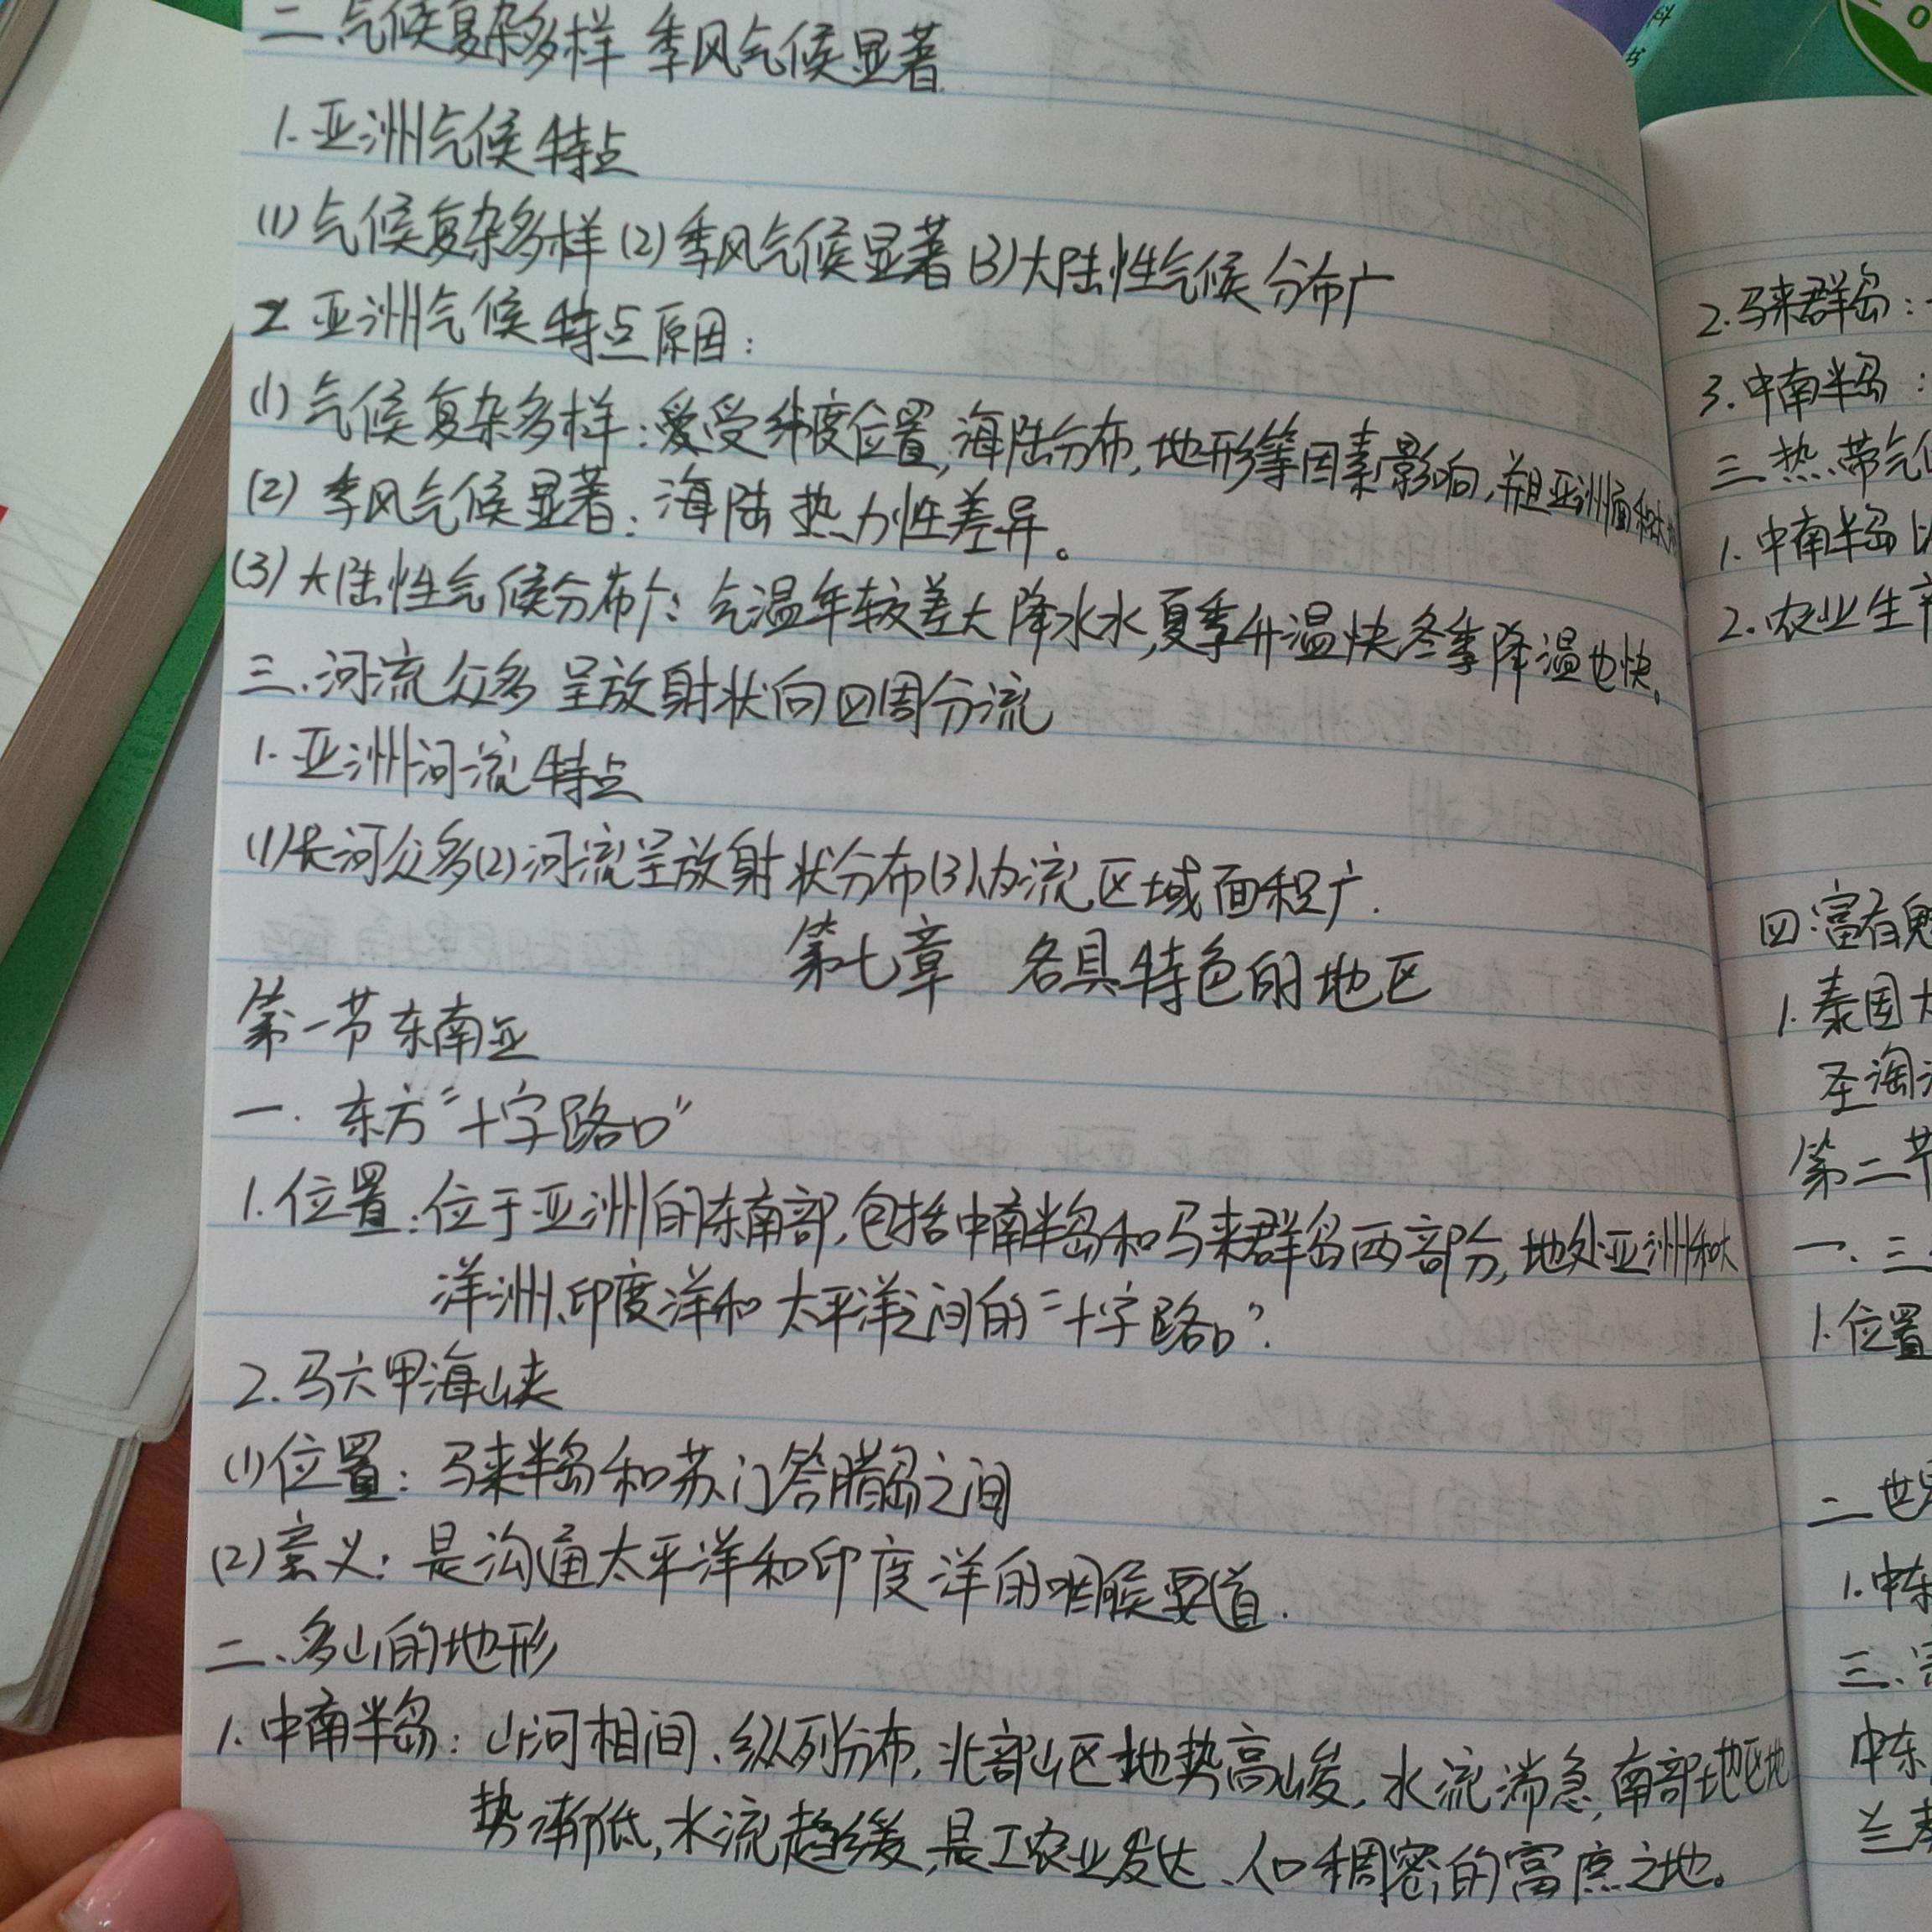 二.气候复杂多样 季风气候显著
1.亚洲气候特点
(1)气候复杂多样(2)季风气候显著(3)大陆性气候分布广
2.亚洲气候特点原因:
(1)气候复杂多样:受纬度位置,海陆分布,地形等因素影响,并且亚洲面积大
(2)季风气候显著:海陆热力性差异。
(3)大陆性气候分布广:气温年较差大降水水,夏季升温快冬季降温也快。
三.河流众多 呈放射状向四周分流
1.亚洲河流特点
(1)长河众多(2)河流呈放射状分布(3)内流区域面积广.
第七章 各具特色的地区
第一节东南亚
一.东方"十字路口"
1.位置:位于亚洲的东南部,包括中南半岛和马来群岛两部分,地处亚洲和大
洋洲、印度洋和太平洋之间的"十字路口".
2.马六甲海峡
(1)位置:马来半岛和苏门答腊岛之间
(2)意义:是沟通太平洋和印度洋的咽喉要道.
二、多山的地形
1.中南半岛:山河相间、纵列分布,北部山区地势高峻,水流湍急,南部地区地
势渐低,水流趋缓,是工农业发达、人口稠密的富庶之地。
2.马来群岛:
3.中南半岛:
三.热带气
1.中南半岛
2.农业生
四.富有
1.泰国
圣淘
第二节
一、三
1.位置
二.世
1.中东
三、
中东
科
书